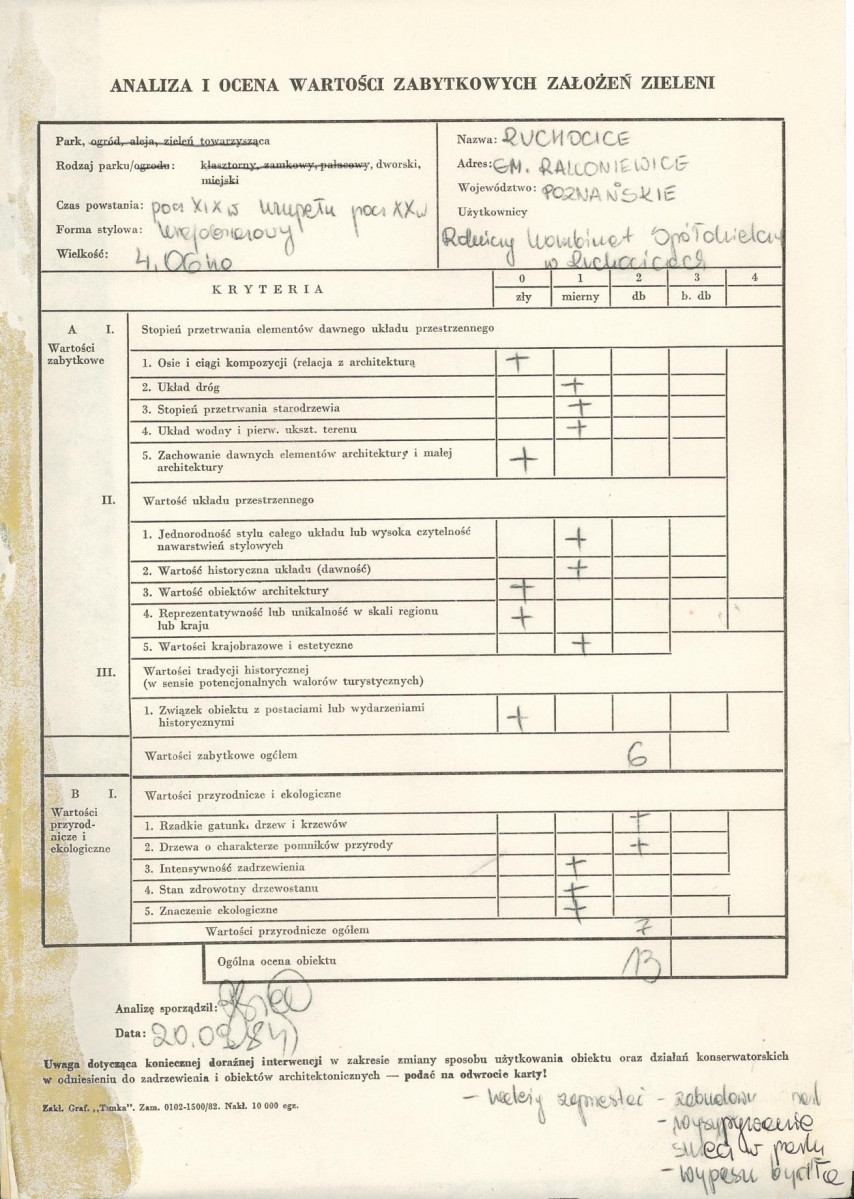 ANALIZA I OCENA WARTOŚCI ZABYTKOWYCH ZAŁOŻEŃ ZIELENI
Park, ogród, aleja, zieleń towarzysząca
Rodzaj parku/ogrodu: klasztorny, zamkowy, pałacowy, dworski,
miejski
Czas powstania: pocz XIX w pocz XX w
Forma stylowa: krajobrazowy
Wielkość: 4,06 ha
Nazwa: RUCHOCICE
Adres: GM. RAKONIEWICE
Województwo: POZNAŃSKIE
Użytkownicy
Rolniczy Kombinat Spółdzielczy
w Ruchocicach
KRYTERIA
0 1 2 3 4
zły mierny db b. db
A I. Stopień przetrwania elementów dawnego układu przestrzennego
Wartości
zabytkowe
1. Osie i ciągi kompozycji (relacja z architekturą +
2. Układ dróg +
3. Stopień przetrwania starodrzewia +
4. Układ wodny i pierw. ukszt. terenu +
5. Zachowanie dawnych elementów architektury i małej
architektury +
II. Wartość układu przestrzennego
1. Jednorodność stylu całego układu lub wysoka czytelność
nawarstwień stylowych +
2. Wartość historyczna układu (dawność) +
3. Wartość obiektów architektury +
4. Reprezentatywność lub unikalność w skali regionu
lub kraju +
5. Wartości krajobrazowe i estetyczne +
III. Wartości tradycji historycznej
(w sensie potencjonalnych walorów turystycznych)
1. Związek obiektu z postaciami lub wydarzeniami
historycznymi +
Wartości zabytkowe ogółem 6
B I. Wartości przyrodnicze i ekologiczne
Wartości
przyrod-
nicze i
ekologiczne
1. Rzadkie gatunki drzew i krzewów +
2. Drzewa o charakterze pomników przyrody +
3. Intensywność zadrzewienia +
4. Stan zdrowotny drzewostanu +
5. Znaczenie ekologiczne +
Wartości przyrodnicze ogółem 7
Ogólna ocena obiektu 13
Analizę sporządził:
Data: 20.09.84
Uwaga dotycząca koniecznej doraźnej interwencji w zakresie zmiany sposobu użytkowania obiektu oraz działań konserwatorskich
w odniesieniu do zadrzewienia i obiektów architektonicznych — podać na odwrocie karty!
Zakł. Graf. „Tamka". Zam. 0102-1500/82. Nakł. 10 000 egz.
- należy zaprzestać - zabudowy
- wysypywanie
śmieci w parku
- wypasu bydła